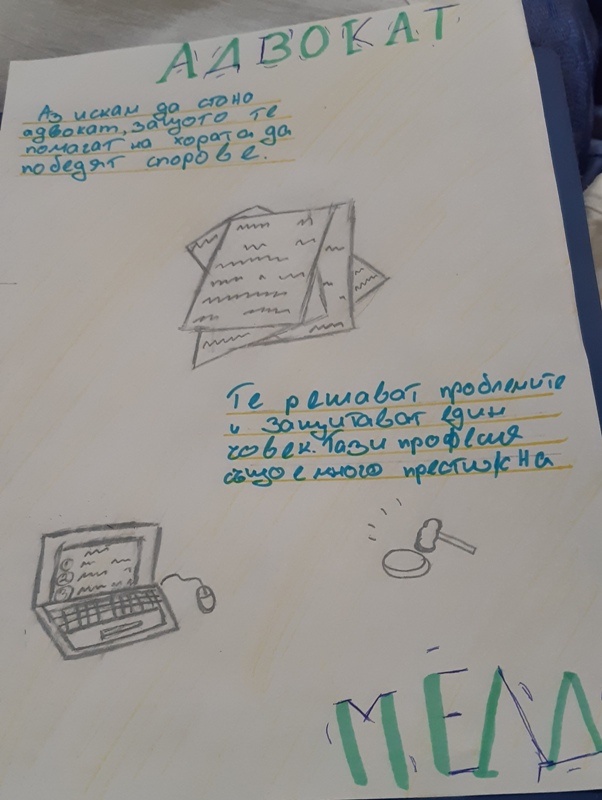 АДВОКАТ
Аз искам да стоно
адвокат, защото те
помагат на хората да
победят спорове.
Те решават проблемите
и защитават един
човек. Тази професия
също е много престижна
1
2
3
МЕДА